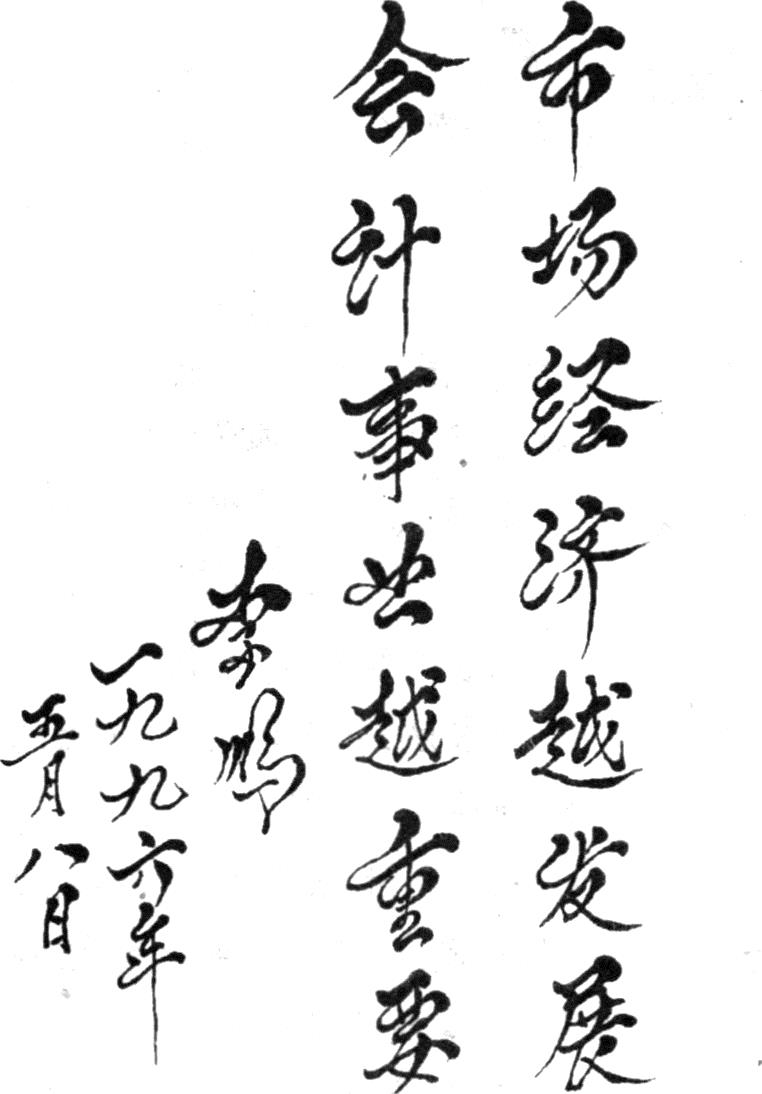 市场经济越发展
会计事业越重要
李鹏
一九九六年
五月八日